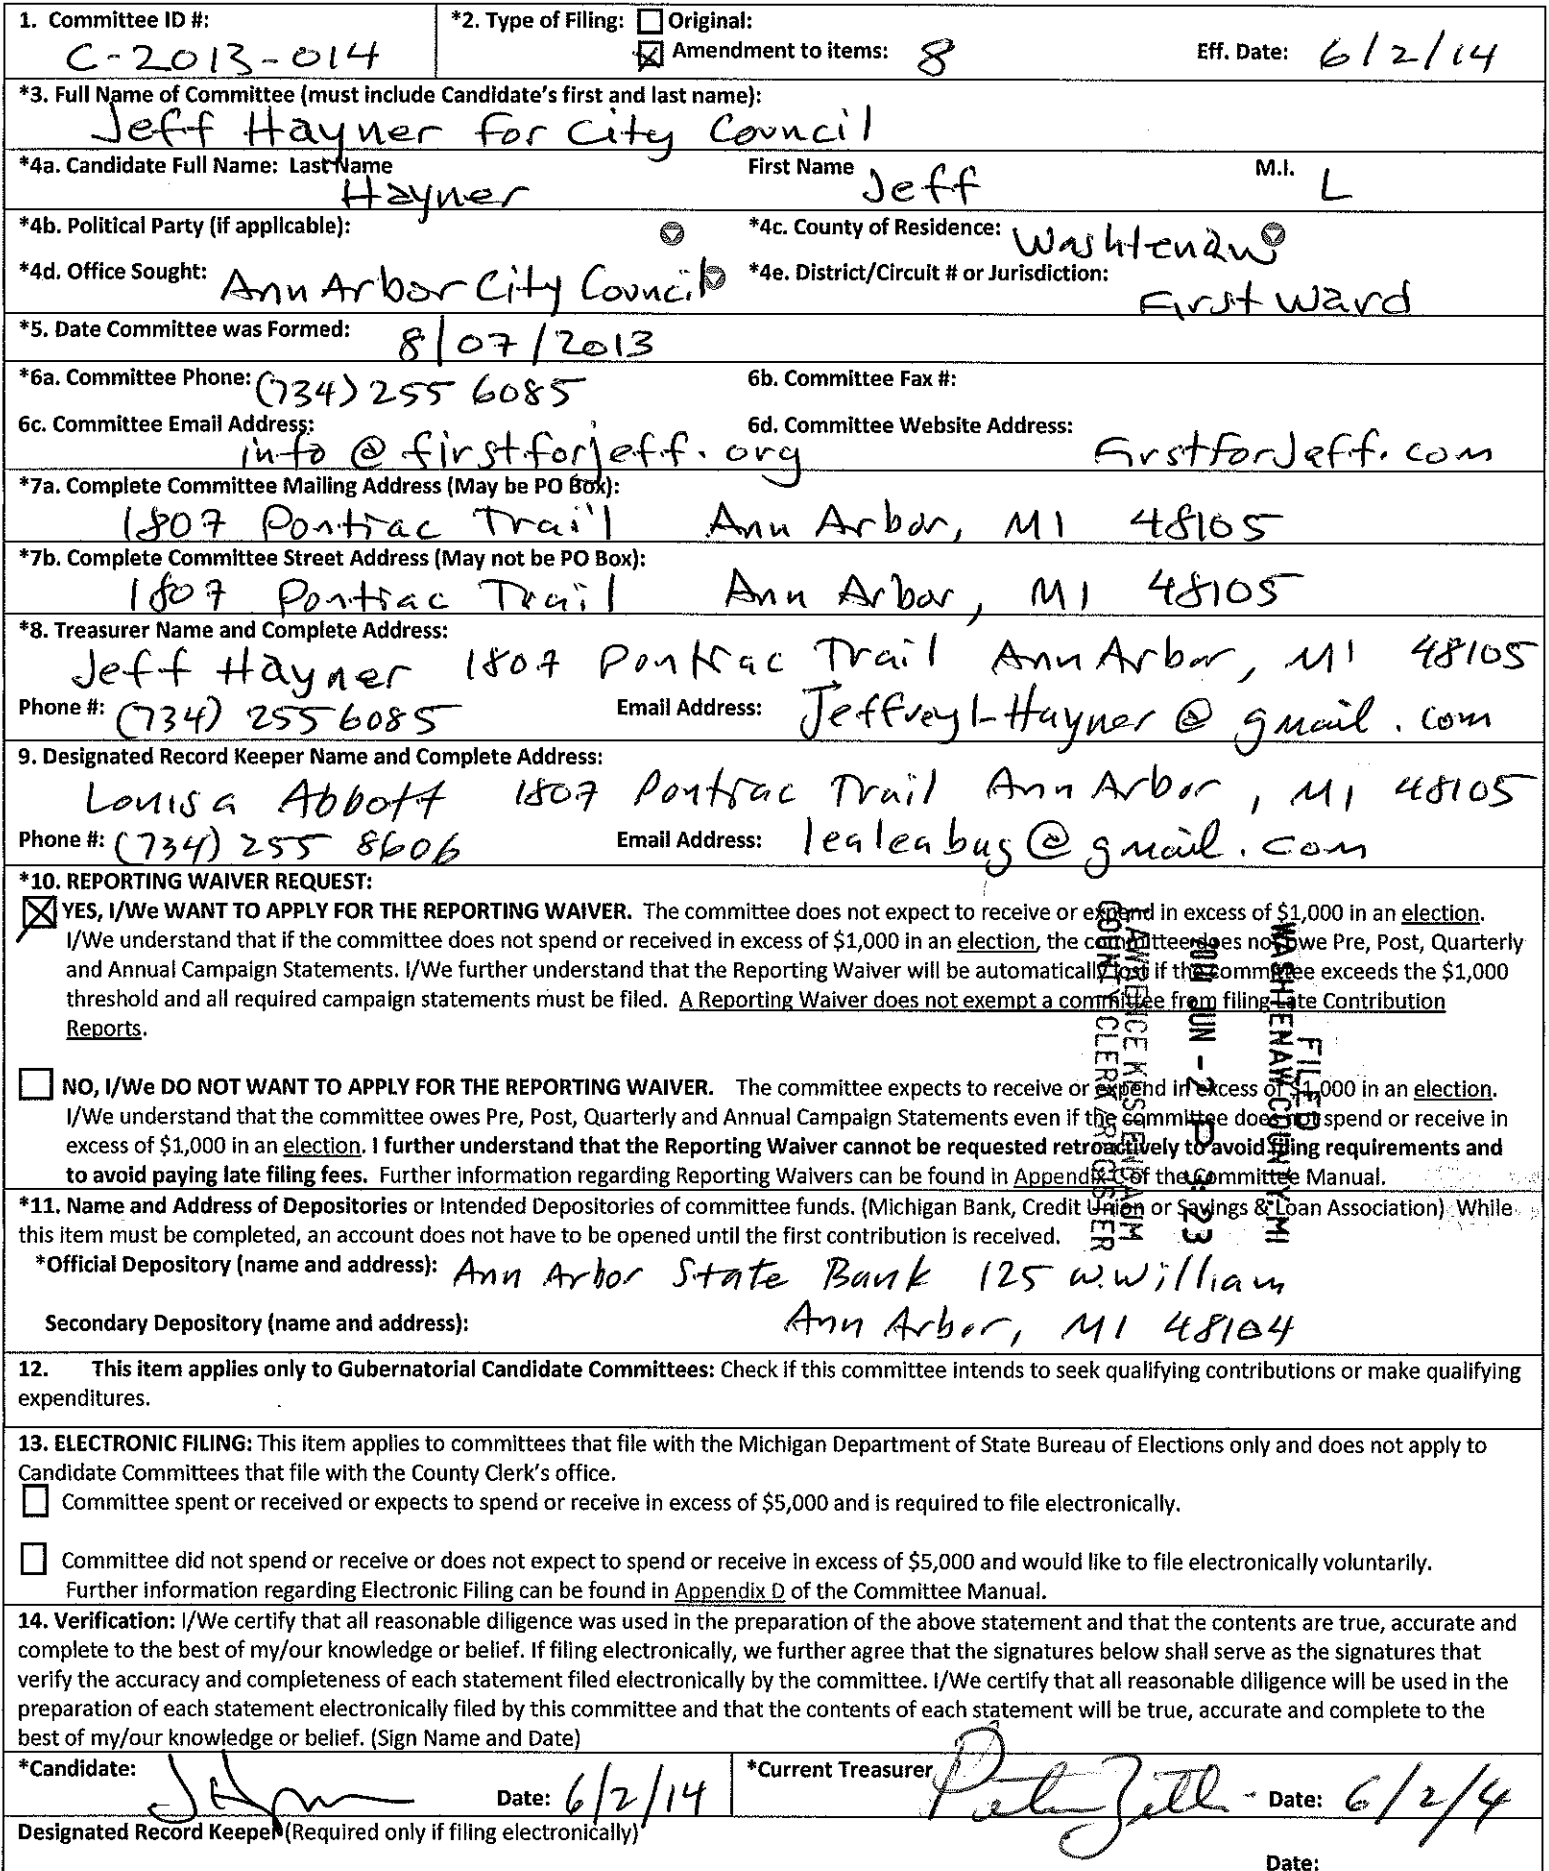 1. Committee ID #: *2. Type of Filing: Original:
C-2013-014 Amendment to items: 8 Eff. Date: 6/2/14
*3. Full Name of Committee (must include Candidate's first and last name):
Jeff Hayner for City Council
*4a. Candidate Full Name: Last Name First Name M.I.
Hayner Jeff L
*4b. Political Party (if applicable): *4c. County of Residence: Washtenaw
*4d. Office Sought: Ann Arbor City Council *4e. District/Circuit # or Jurisdiction:
First Ward
*5. Date Committee was Formed: 8/07/2013
*6a. Committee Phone: (734) 255 6085 6b. Committee Fax #:
6c. Committee Email Address: 6d. Committee Website Address:
info@firstforjeff.org FirstforJeff.com
*7a. Complete Committee Mailing Address (May be PO Box):
1807 Pontiac Trail Ann Arbor, MI 48105
*7b. Complete Committee Street Address (May not be PO Box):
1807 Pontiac Trail Ann Arbor, MI 48105
*8. Treasurer Name and Complete Address:
Jeff Hayner 1807 Pontiac Trail Ann Arbor, MI 48105
Phone #: (734) 255 6085 Email Address: JeffreyLHayner@gmail.com
9. Designated Record Keeper Name and Complete Address:
Louisa Abbott 1807 Pontiac Trail Ann Arbor, MI 48105
Phone #: (734) 255 8606 Email Address: lealeabug@gmail.com
*10. REPORTING WAIVER REQUEST:
YES, I/We WANT TO APPLY FOR THE REPORTING WAIVER. The committee does not expect to receive or expend in excess of $1,000 in an election.
I/We understand that if the committee does not spend or received in excess of $1,000 in an election, the committee does not owe Pre, Post, Quarterly
and Annual Campaign Statements. I/We further understand that the Reporting Waiver will be automatically lost if the committee exceeds the $1,000
threshold and all required campaign statements must be filed. A Reporting Waiver does not exempt a committee from filing Late Contribution
Reports.
NO, I/We DO NOT WANT TO APPLY FOR THE REPORTING WAIVER. The committee expects to receive or expend in excess of $1,000 in an election.
I/We understand that the committee owes Pre, Post, Quarterly and Annual Campaign Statements even if the committee does not spend or receive in
excess of $1,000 in an election. I further understand that the Reporting Waiver cannot be requested retroactively to avoid filing requirements and
to avoid paying late filing fees. Further information regarding Reporting Waivers can be found in Appendix C of the Committee Manual.
FILED
WASHTENAW COUNTY, MI
2014 JUN -2 P 3: 23
LAWRENCE KESTENBAUM
COUNTY CLERK/REGISTER
*11. Name and Address of Depositories or Intended Depositories of committee funds. (Michigan Bank, Credit Union or Savings & Loan Association) While
this item must be completed, an account does not have to be opened until the first contribution is received.
*Official Depository (name and address): Ann Arbor State Bank 125 W. William
Secondary Depository (name and address): Ann Arbor, MI 48104
12. This item applies only to Gubernatorial Candidate Committees: Check if this committee intends to seek qualifying contributions or make qualifying
expenditures.
13. ELECTRONIC FILING: This item applies to committees that file with the Michigan Department of State Bureau of Elections only and does not apply to
Candidate Committees that file with the County Clerk's office.
Committee spent or received or expects to spend or receive in excess of $5,000 and is required to file electronically.
Committee did not spend or receive or does not expect to spend or receive in excess of $5,000 and would like to file electronically voluntarily.
Further information regarding Electronic Filing can be found in Appendix D of the Committee Manual.
14. Verification: I/We certify that all reasonable diligence was used in the preparation of the above statement and that the contents are true, accurate and
complete to the best of my/our knowledge or belief. If filing electronically, we further agree that the signatures below shall serve as the signatures that
verify the accuracy and completeness of each statement filed electronically by the committee. I/We certify that all reasonable diligence will be used in the
preparation of each statement electronically filed by this committee and that the contents of each statement will be true, accurate and complete to the
best of my/our knowledge or belief. (Sign Name and Date)
*Candidate: Date: 6/2/14 *Current Treasurer Date: 6/2/4
Designated Record Keeper (Required only if filing electronically)
Date: